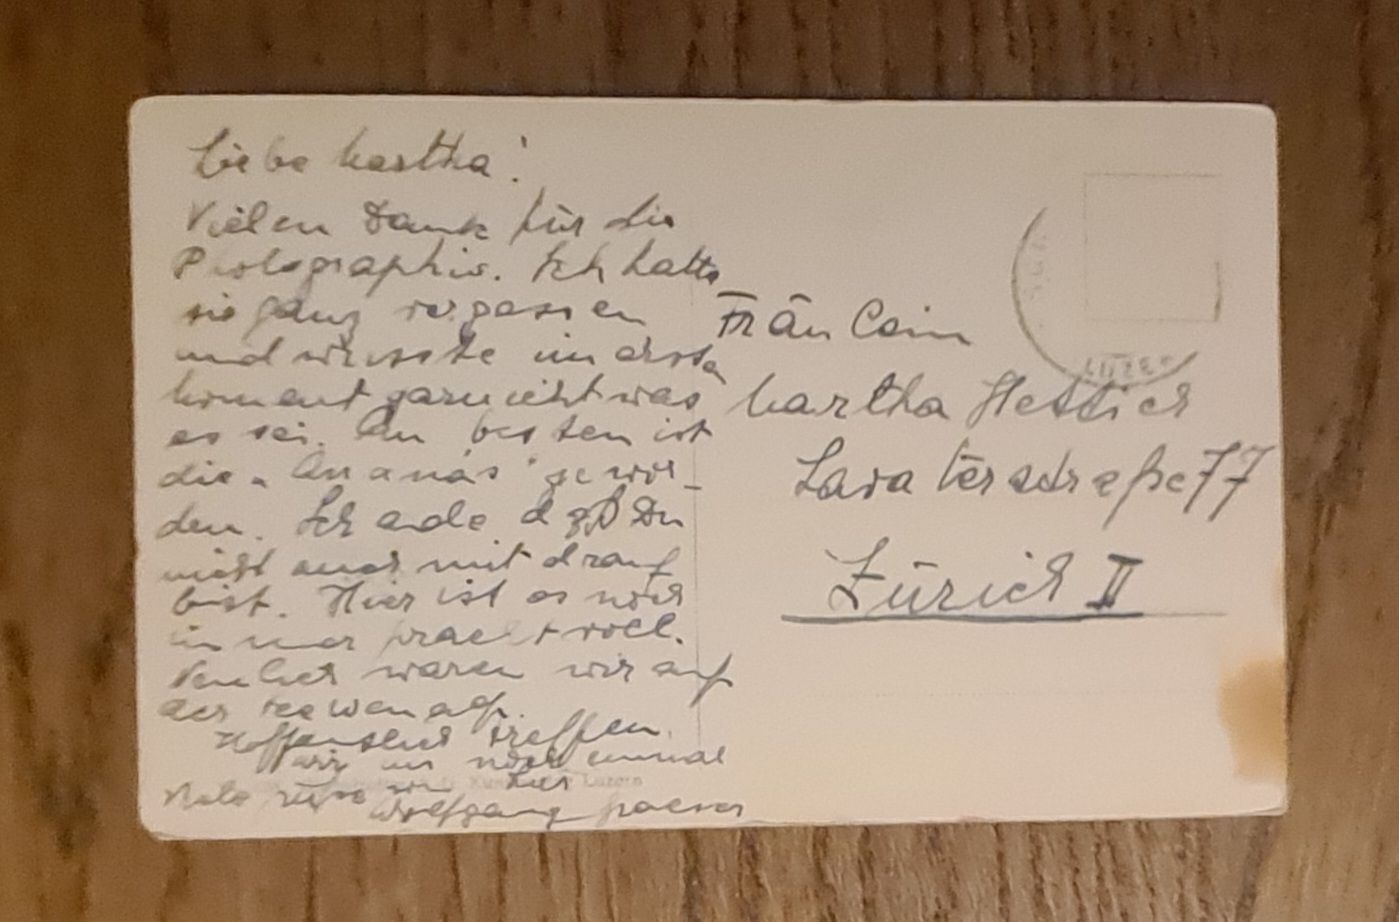 Liebe Martha!
Vielen Dank für die
Photographie. Ich hatte
sie ganz vergessen
und wusste im ersten
Moment garnicht was
es sei. Am besten ist
die „Ananas" gewor-
den. Schade daß Du
nicht auch mit drauf
bist. Hier ist es noch
immer prachtvoll.
Neulich waren wir auf
der Seewenalp.
Hoffentlich treffen
wir uns noch einmal
hier
Viele Grüße von
Wolfgang
Fräulein
Martha Hettich
Lavaterstraße 77
Zürich II
LUZERN
Luzern